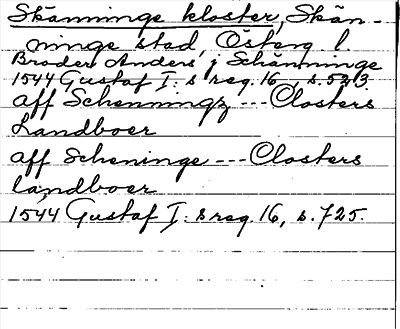 Skänninge kloster, Skän-
ninge stad, Österg l
Broder Anders j Schänninge
1544 Gustaf I:s reg. 16, s. 523.
aff Schenningz --- Closters
Landboer
aff Scheninge --- Closters
landboer
1544 Gustaf I:s reg. 16, s. 725.